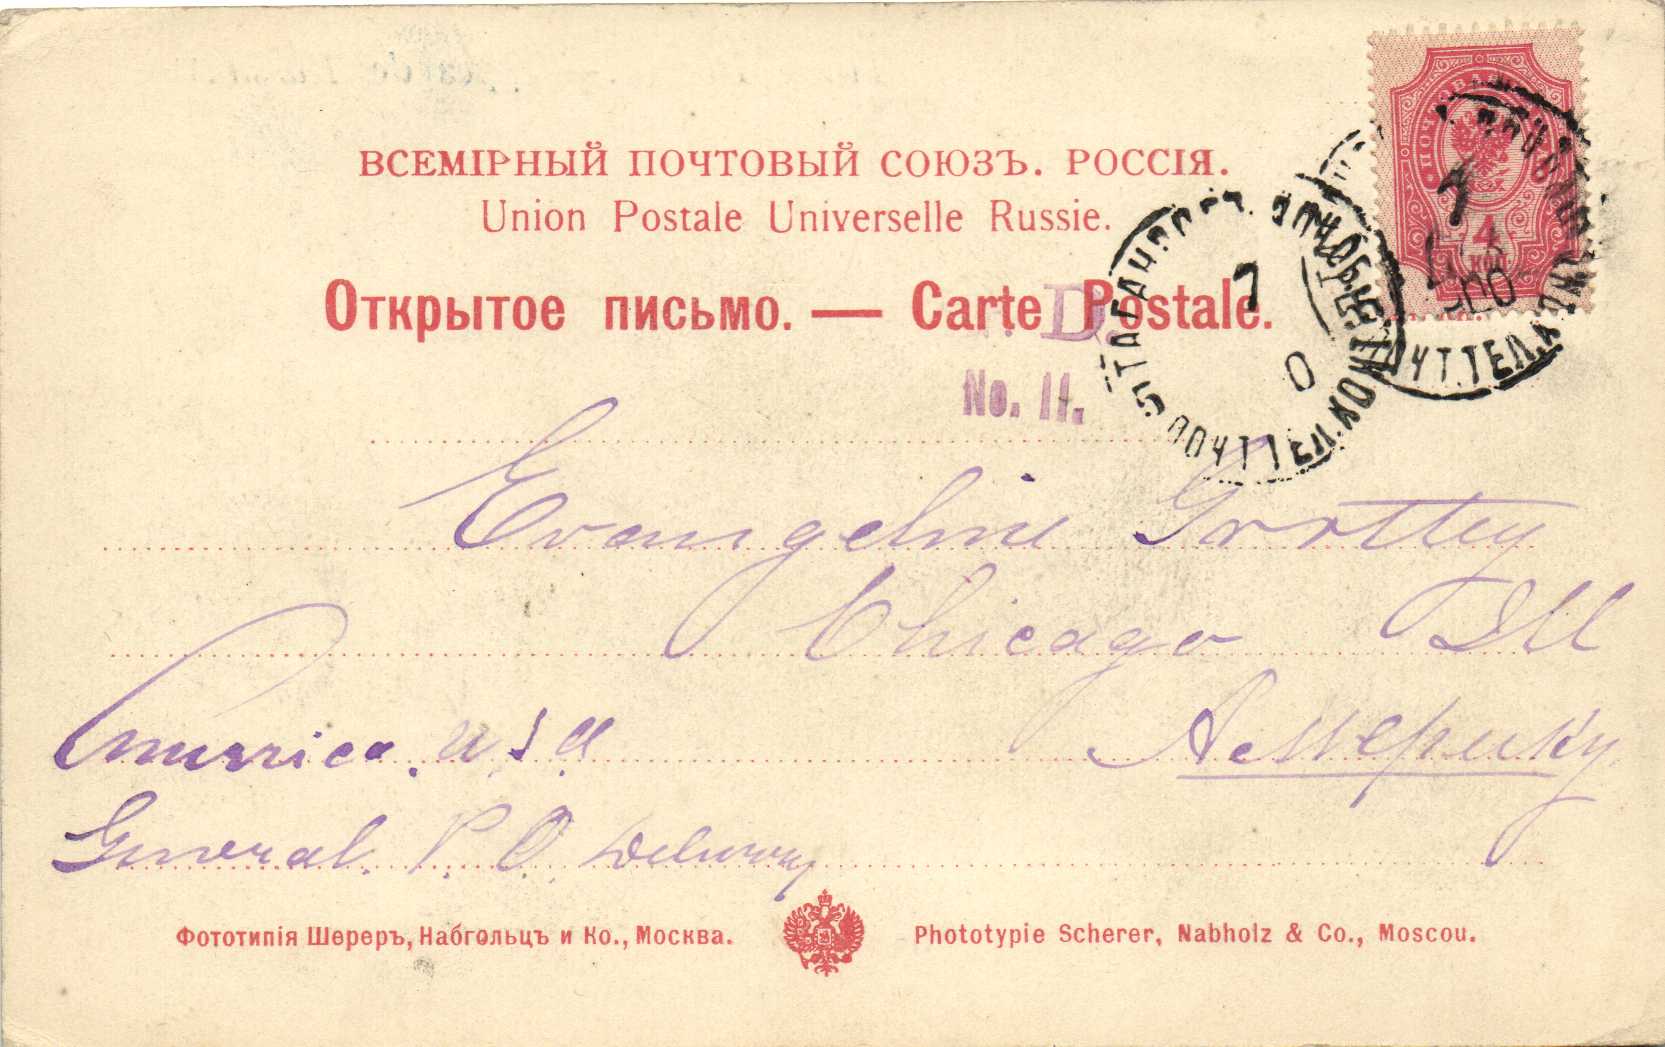 ВСЕМІРНЫЙ ПОЧТОВЫЙ СОЮЗЪ. РОССІЯ.
Union Postale Universelle Russie.
Открытое письмо. — Carte Postale.
D.
No. 11.
4
КОП
ТАГАНРОГЪ
ПОЧТ.ТЕЛ.КОНТ
7
0
7
ПОЧТ.ТЕЛ.КОНТ
Evangeline
Chicago Ill
America. U S A
Америку
General. P. O. Delivery
Фототипія Шереръ, Набгольцъ и Ко., Москва.
Phototypie Scherer, Nabholz & Co., Moscou.